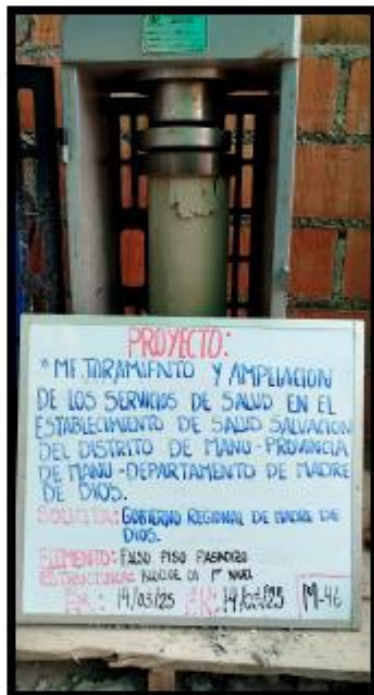 PROYECTO:
"MEJORAMIENTO Y AMPLIACION
DE LOS SERVICIOS DE SALUD EN EL
ESTABLECIMIENTO DE SALUD SALVACION
DEL DISTRITO DE MANU - PROVINCIA
DE MANU - DEPARTAMENTO DE MADRE
DE DIOS.
SOLICITA: GOBIERNO REGIONAL DE MADRE DE
DIOS.
ELEMENTO: FALSO PISO PASADIZO
ESTRUCTURA: BLOQUE 01 1º NIVEL
14/03/25 M-46